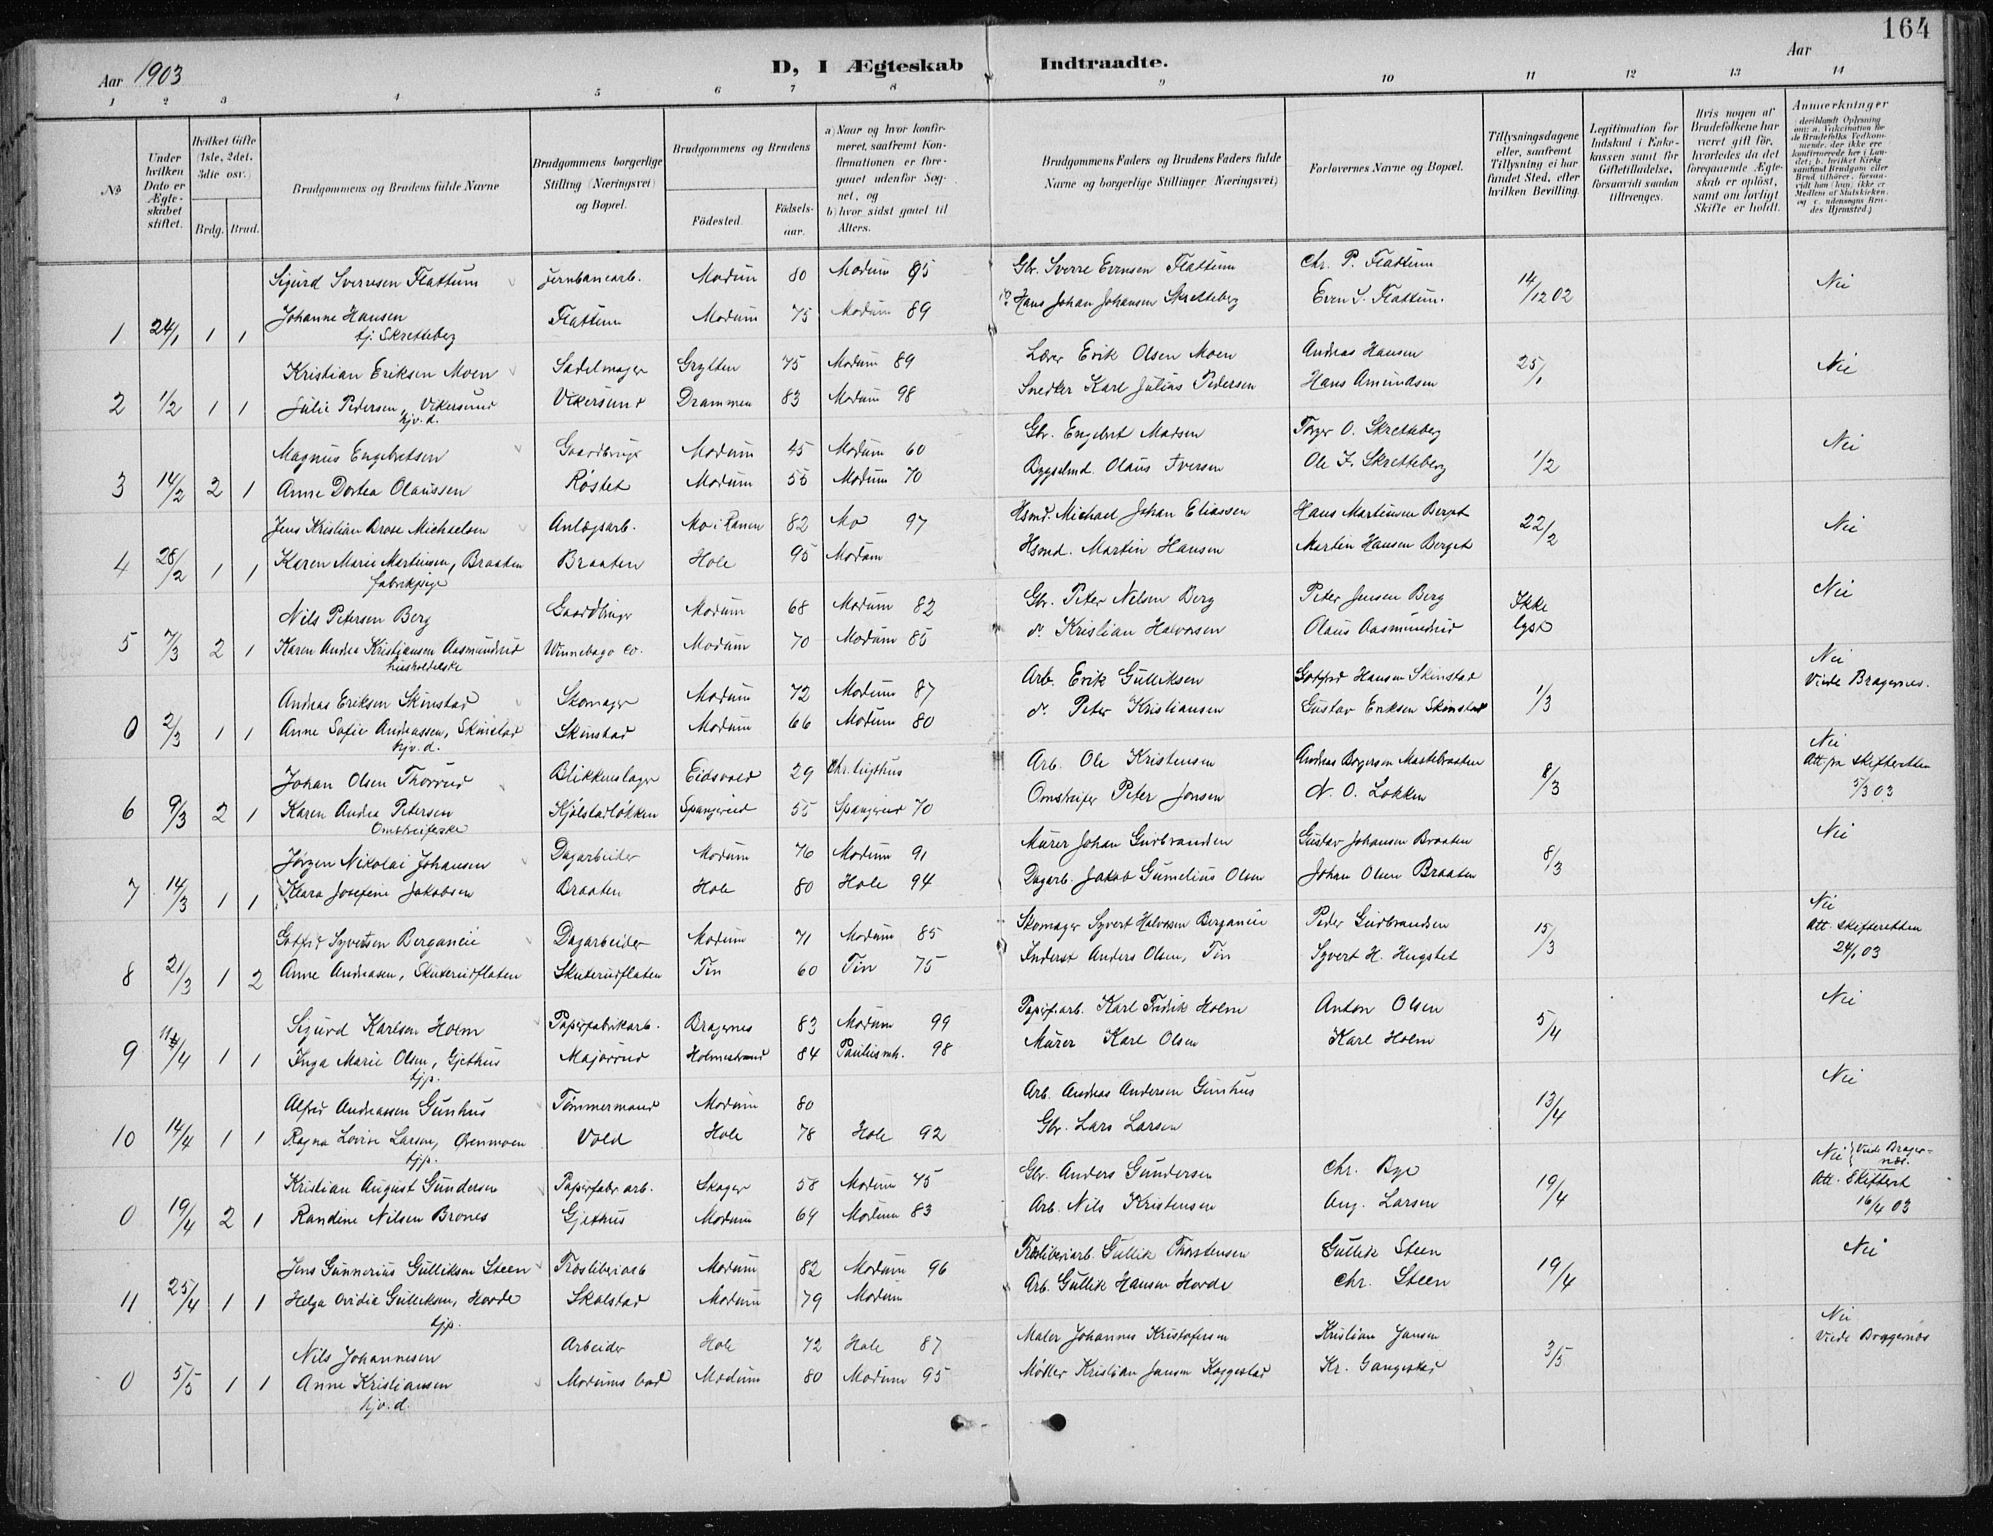 164
Aar 1903
D, I Ægteskab Indtraadte.
Aar
1 2 3 4 5 6 7 8 9 10 11 12 13 14
No
Under hvilken Dato er Ægteskabet stiftet.
Hvilket Gifte (1ste, 2det, 3die osv.)
Brdg. Brud.
Brudgommens og Brudens fulde Navne
Brudgommens borgerlige Stilling (Næringsvei) og Bopæl.
Brudgommens og Brudens
Födested.
Födsels-aar.
a) Naar og hvor konfirmeret, saafremt Konfirmationen er foregaaet udenfor Sognet, og
b) hvor sidst gaaet til Alters.
Brudgommens Faders og Brudens Faders fulde Navne og borgerlige Stillinger (Næringsvei)
Forlovernes Navne og Bopæl.
Tillysningsdagene eller, saafremt Tillysning ei har fundet Sted, efter hvilken Bevilling.
Legitimation for Indskud i Enkekassen samt for Giftetilladelse, forsaavidt saadan tiltrænges.
Hvis nogen af Brudefolkene har været gift før, hvorledes da det foregaaende Ægteskab er oplöst, samt om lovligt Skifte er holdt.
Anmærkninger
(deriblandt Oplysning om: a. Vaccination for de Brudefolks Vedkommende, der ikke ere konfirmerede her i Landet; b. hvilket Kirkesamfund Brudgom eller Brud tilhörer, forsaavidt han (hun) ikke er Medlem af Statskirken, og c. udensogns Brudes Hjemsted.)
Sigurd Sverresen Flattum Jernbanearb. Modum 80 Modum 95 Gbr. Sverre Evensen Flattum Chr. P. Flattum 14/12 02 Nei
1 24/1 1 1 Johanne Hansen Flattum Modum 75 Modum 89 Hans Johan Johansen Skretteberg Even S. Flattum.
tj. Skretteberg
Kristian Eriksen Moen Sadelmager Grytten 75 Modum 89 Lærer Erik Olsen Moen Andreas Hansen 25/1 Nei
2 1/2 1 1 Julie Pedersen, Vikersund Vikersund Drammen 83 Modum 98 Snedker Karl Julius Pedersen Hans Amundsen
hjv. d.
Magnus Engebretsen Gaardbruger Modum 45 Modum 60 Gbr. Engebret Madsen Torger O. Skretteberg 1/2 Nei
3 14/2 2 1 Anne Dortea Olaussen Røstet Modum 55 Modum 70 Bygselmd. Olaus Iversen Ole J. Skretteberg
Jens Kristian Brose Michaelsen Anlægsarb. Mo i Ranen 82 Mo 97 Hsmd. Michael Johan Eliassen Hans Martinsen Berget 22/2 Nei
4 28/2 1 1 Karen Marie Martinsen, Braaten Braaten Hole 95 Modum Hsmd. Martin Hansen Martin Hansen Berget
fabrikpige
Nils Petersen Berg Gaardbruger Modum 68 Modum 82 Gbr. Peter Nelsen Berg Peter Jensen Berg Ikke lyst Nei
5 7/3 2 1 Karen Andrea Kristiansen Aasmundrud Winnebago Co. Modum 70 Modum 85 do Kristian Halvorsen Olaus Aasmundrud
husholderske
Andreas Eriksen Skinstad Skomager Modum 72 Modum 87 Arb. Erik Gulliksen Gotfred Hansen Skinstad 1/3 Nei
Viede Bragernes.
0 2/3 1 1 Anne Sofie Andreassen, Skinstad Skinstad Modum 66 Modum 80 do Peter Kristiansen Gustav Eriksen Skinstad
hjv. d.
Johan Olsen Thorrud Blikkenslager Eidsvold 29 Chr. tugthus Arb. Ole Kristensen 8/3 Nei
Att. fra Skifteretten
5/3 03
6 9/3 2 1 Karen Andrea Petersen Kjölstadløkken Spangereid 55 Spangereid 70 Omstreifer Peter Jonsen N. O. Løkken
Omstreiferske
Jørgen Nikolai Johansen Dagarbeider Modum 76 Modum 91 Murer Johan Gudbrandsen Gustav Johansen Braaten 8/3 Nei
7 14/3 1 1 Klara Josefine Jakobsen Braaten Hole 80 Hole 94 Dagarb. Jakob Gumelius Olsen Johan Olsen Braaten
Gotfred Syvertsen Berganeie Dagarbeider Modum 71 Modum 85 Skomager Syvert Halvorsen Berganeie Peder Gudbrandsen 15/3 Nei
Att. Skifteretten
24/1 03
8 21/3 1 2 Anne Andreasen, Skuterudflaten Skuterudflaten Tin 60 Tin 75 Inderst Anders Olsen, Tin Syvert H. Hugstet
Sigurd Karlsen Holm Papirfabrikarb. Bragernes 83 Modum 99 Papirf.arb. Karl Fredrik Holm Anton Olsen 5/4 Nei
9 11/4 1 1 Inga Marie Olsen, Gjethus Majorrud Holmestrand 84 Paulus mh. 98 Murer Karl Olsen Karl Holm
tjp.
Alfred Andreassen Gunhus Tømmermand Modum 80 Arb. Andreas Andersen Gunhus 13/4 Nei
10 14/4 1 1 Ragna Lovise Larsen, Ovenmoen Vold Hole 78 Hole 92 Gbr. Lars Larsen
tjp.
Kristian August Gundersen Papirfabr. arb. Skoger 58 Modum 75 Gbr. Anders Gundersen Chr. Bye 19/4 Nei Viede Bragernæs.
Att. Skifteret
16/4 03
0 19/4 2 1 Randine Nilsen Brones Gjethus Modum 69 Modum 83 Arb. Nils Kristensen Aug. Larsen
Jens Gunnerius Gulliksen Steen Træsliberiarb Modum 82 Modum 96 Træsliberiarb. Gullik Thorstensen Gullik Steen 19/4 Nei
11 25/4 1 1 Helga Ovidia Gulliksen, Hovde Skalstad Modum 79 Modum Arb. Gullik Hansen Hovde Chr. Steen
tjp.
Nils Johannesen Arbeider Hole 72 Hole 87 Maler Johannes Kristofersen Kristian Jansen 3/5 Nei
Viede Bragernæs
0 5/5 1 1 Anne Kristiansen Modums bad Modum 80 Modum 95 Møller Kristian Jansen Kaggestad Kr. Gangestad
hjv. d.